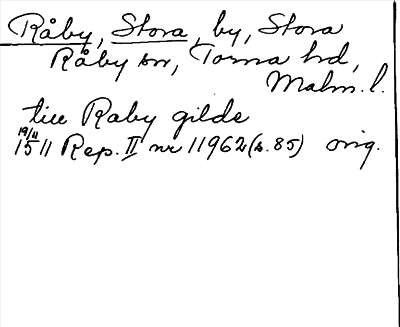 Råby, Stora, by, Stora
Råby sn, Torna hd,
Malm. l.
till Raby gilde
19/11
1511 Rep. II nr 11962 (s. 85) orig.